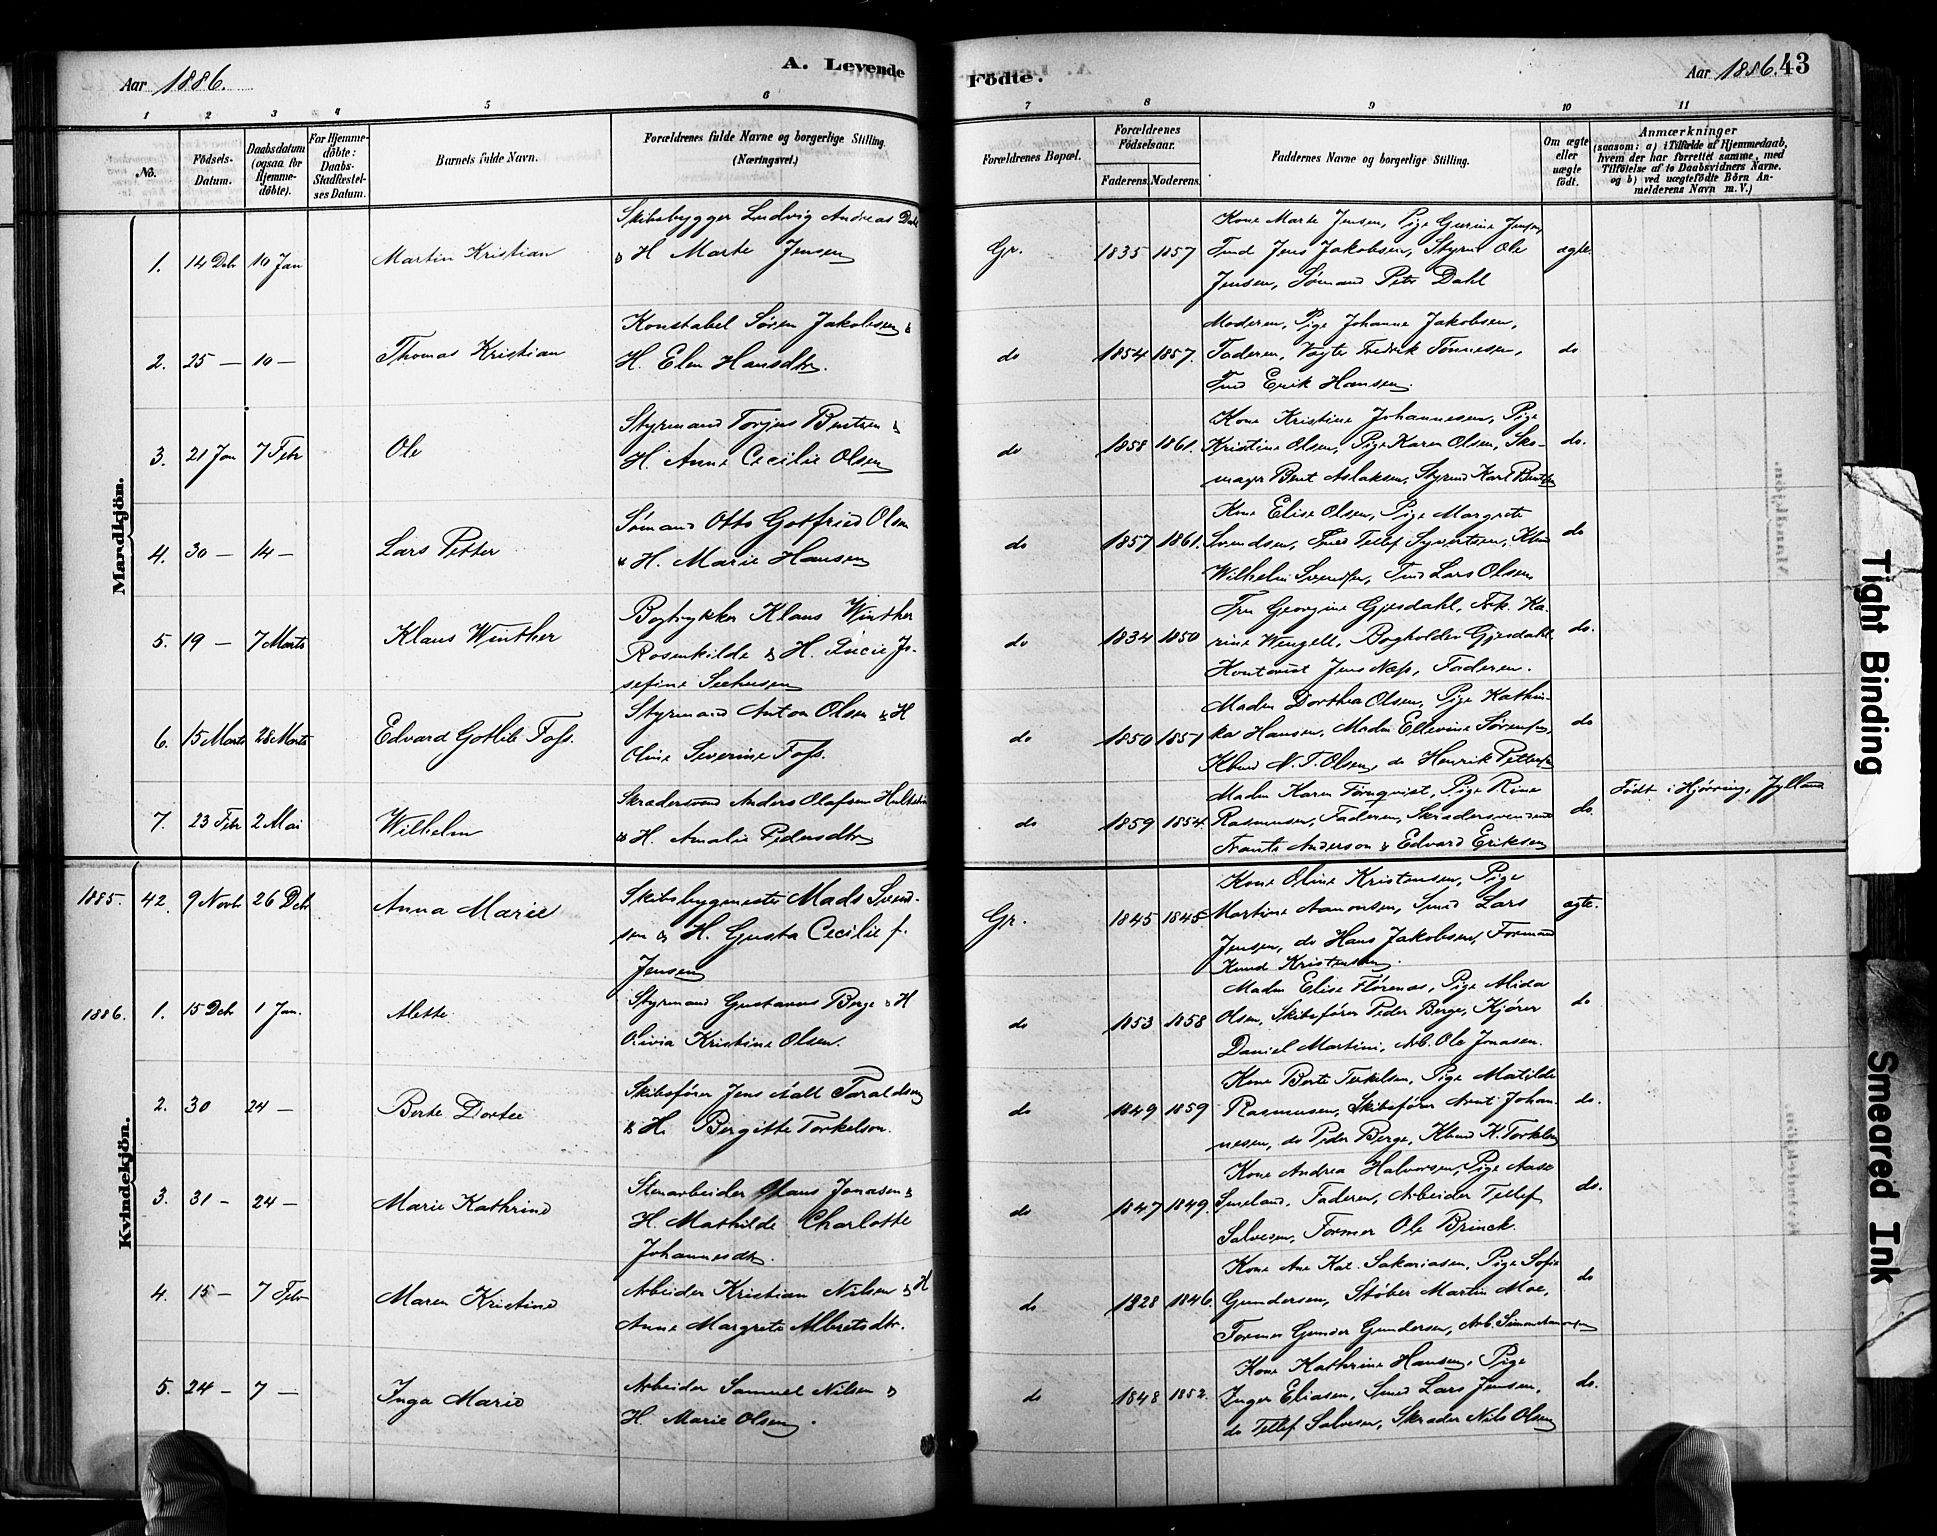 Aar 1886. A. Levende
1 2 3 4 5 6
No. Födsels-Datum. Daabsdatum (ogsaa for Hjemme-döbte). For Hjemme-döbte: Daabs-Stadfæstel-ses Datum. Barnets fulde Navn. Forældrenes fulde Navne og borgerlige Stilling. (Næringsvei.)
Mandkjön.
Skibsbygger Ludvig Andreas Dahl
1. 14 Dcbr 10 Jan Martin Kristian & H Marte Jensen
Konstabel Sören Jakobsen &
2. 25 — 10 — Thomas Kristian H. Elen Hansdtr.
Styrmand Torjus Bentsen &
3. 21 Jan 7 Febr Ole H. Anne Cecilie Olsen
Sömand Otto Gotfried Olsen
4. 30 — 14 — Lars Petter & H. Marie Hansen
Bogtrykker Klaus Winther
5. 19 — 7 Marts Klaus Winther Rosenkilde & H. Lucie Jo-
sefine Seehusen
Styrmand Anton Olsen & H
6. 15 Marts 28 Marts Edvard Gotlib Foss. Oline Severine Foss.
Skrædersvend Anders Olafsen
7. 23 Febr 2 Mai Wilhelm & H. Amalie Pedersdtr
Kvindekjön.
Skibsbygmester Mads Svend-
1885. 42. 9 Novbr 26 Dcbr Anna Marie sen & H. Gusta Cecilie f.
Jensen
Styrmand Gustavus Berge & H
1886. 1. 15 Dcbr 1 Jan. Alette Olivia Kristine Olsen.
Skibsförer Jens Aalt Taraldsen
2. 30 24 — Berte Dortee & H. Bergitte Torkelsen.
Stenarbeider Claus Jonasen &
3. 31 — 24 — Marie Kathrine H. Mathilde Charlotte
Johannesdtr.
Arbeider Kristian Nilsen & H
4. 15 — 7 Febr Maren Kristine Anne Margrete Albretsdtr.
Arbeider Samuel Nilsen &
5. 24 — 7 — Inga Marie H. Marie Olsen.
Födte. Aar 1886. 43
7 8 9 10 11
Forældrenes Bopæl. Forældrenes Födselsaar. Faderens. Moderens. Faddernes Navne og borgerlige Stilling. Om ægte eller uægte födt. Anmærkninger (saasom: a) i Tilfælde af Hjemmedaab, hvem der har forrettet samme, med Tilföielse af to Daabsvidners Navne. og b) ved uægtefödte Börn An-melderens Navn m. V.)
Kone Marte Jensen, Pige Gurine Jensen,
Gr. 1835 1857 Tmd Jens Jakobsen, Styrm Ole ægte.
Jensen, Sömand Peter Dahl
Moderen, Pige Johanne Jakobsen,
do 1854 1857. Faderen, Vagter Fredrik Tönnesen, do
Tmd Erik Hansen.
Kone Kristine Johannesen, Pige
do 1858 1861. Kristine Olsen, Pige Karen Olsen, Sko- do.
mager Bent Aslaksen, Styrmd Karl Bentsen
Kone Elise Olsen, Pige Margrete
do 1857 1861. Svendsen, Smed Tellef Syvertsen, do
Wilhelm Svendsen, Tmd Lars Olsen
Fru Georgine Gjesdahl, Frk. Ka-
do 1834 1850 rine Wengell, Bogholder Gjesdahl do.
Kontorist Jens Næss, Faderen.
Madm Dorthea Olsen, Pige Kathin-
do 1850 1851 ka Hansen, Madm Ellevine Sörensen, do
N. T. Olsen, do Henrik Pettersen
Madm Karen Törnqvist, Pige Rine
do 1859 1854. Rasmussen, Faderen, Skrædersvendene do. Födt i Hjörring, Jylland
Frants Anderson & Edvard Eriksen
Kone Oline Kristensen, Pige
Gr. 1845 1845 Martine Aamonsen, Smed Lars ægte.
Jensen, do Hans Jakobsen, Formand
Knud Kristensen.
Madm Elise Flörenas, Pige Alida
do 1853 1858 Olsen, Skibsförer Peder Berge, Kjörer do
Daniel Martini, Arb. Ole Jonasen.
Kone Berte Terkelsen, Pige Matilde
do 1849 1859 Rasmussen, Skibsförer Arnt Johan- do.
nesen, do Peder Berge, K. Torkelsen
Kone Andrea Halvorsen, Pige Aase
do 1847 1849. Smeland, Faderen, Arbeider Tellef do.
Salvesen, Former Ole Brinck.
Kone Ane Kat. Sakariasen, Pige Sofie
do 1828 1846. Gundersen, Stöber Martin Moe, do
Former Gunder Gundersen, Arb.
Kone Kathrine Hansen, Pige
do 1848 1852. Inger Eliasen, Smed Lars Jensen, do.
do Tellef Salvesen, Skræder Nils Olsen
Tight Binding
Smeared Ink